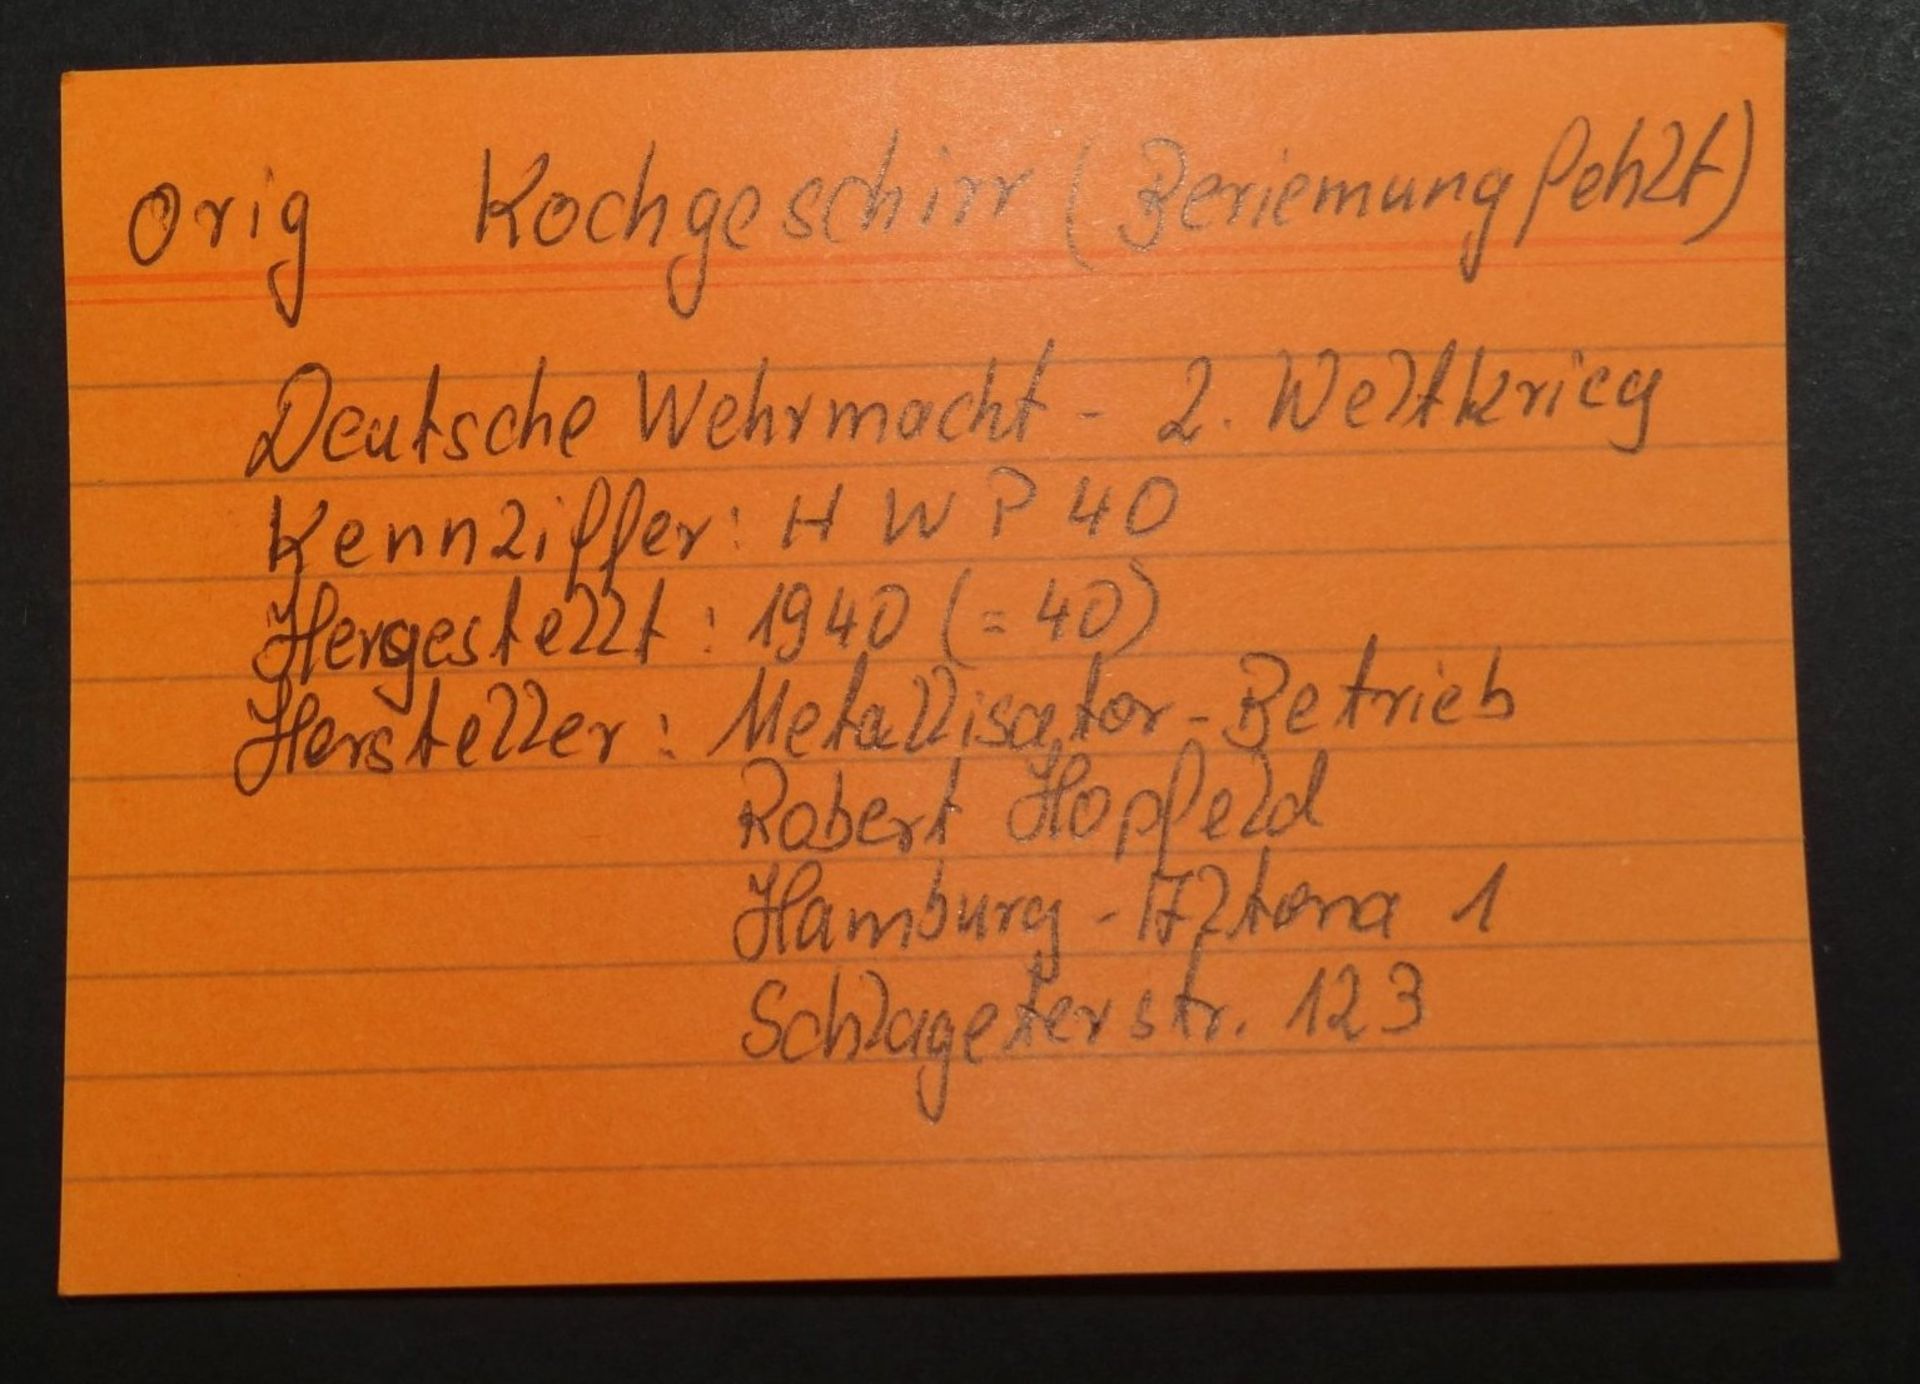 Orig Kochgeschirr (Beriemung fehlt)
Deutsche Wehrmacht - 2. Weltkrieg
Kennziffer: H W P 40
Hergestellt: 1940 (= 40)
Hersteller: Metallisator-Betrieb
Robert Hopfeld
Hamburg - Altona 1
Schlageterstr. 123